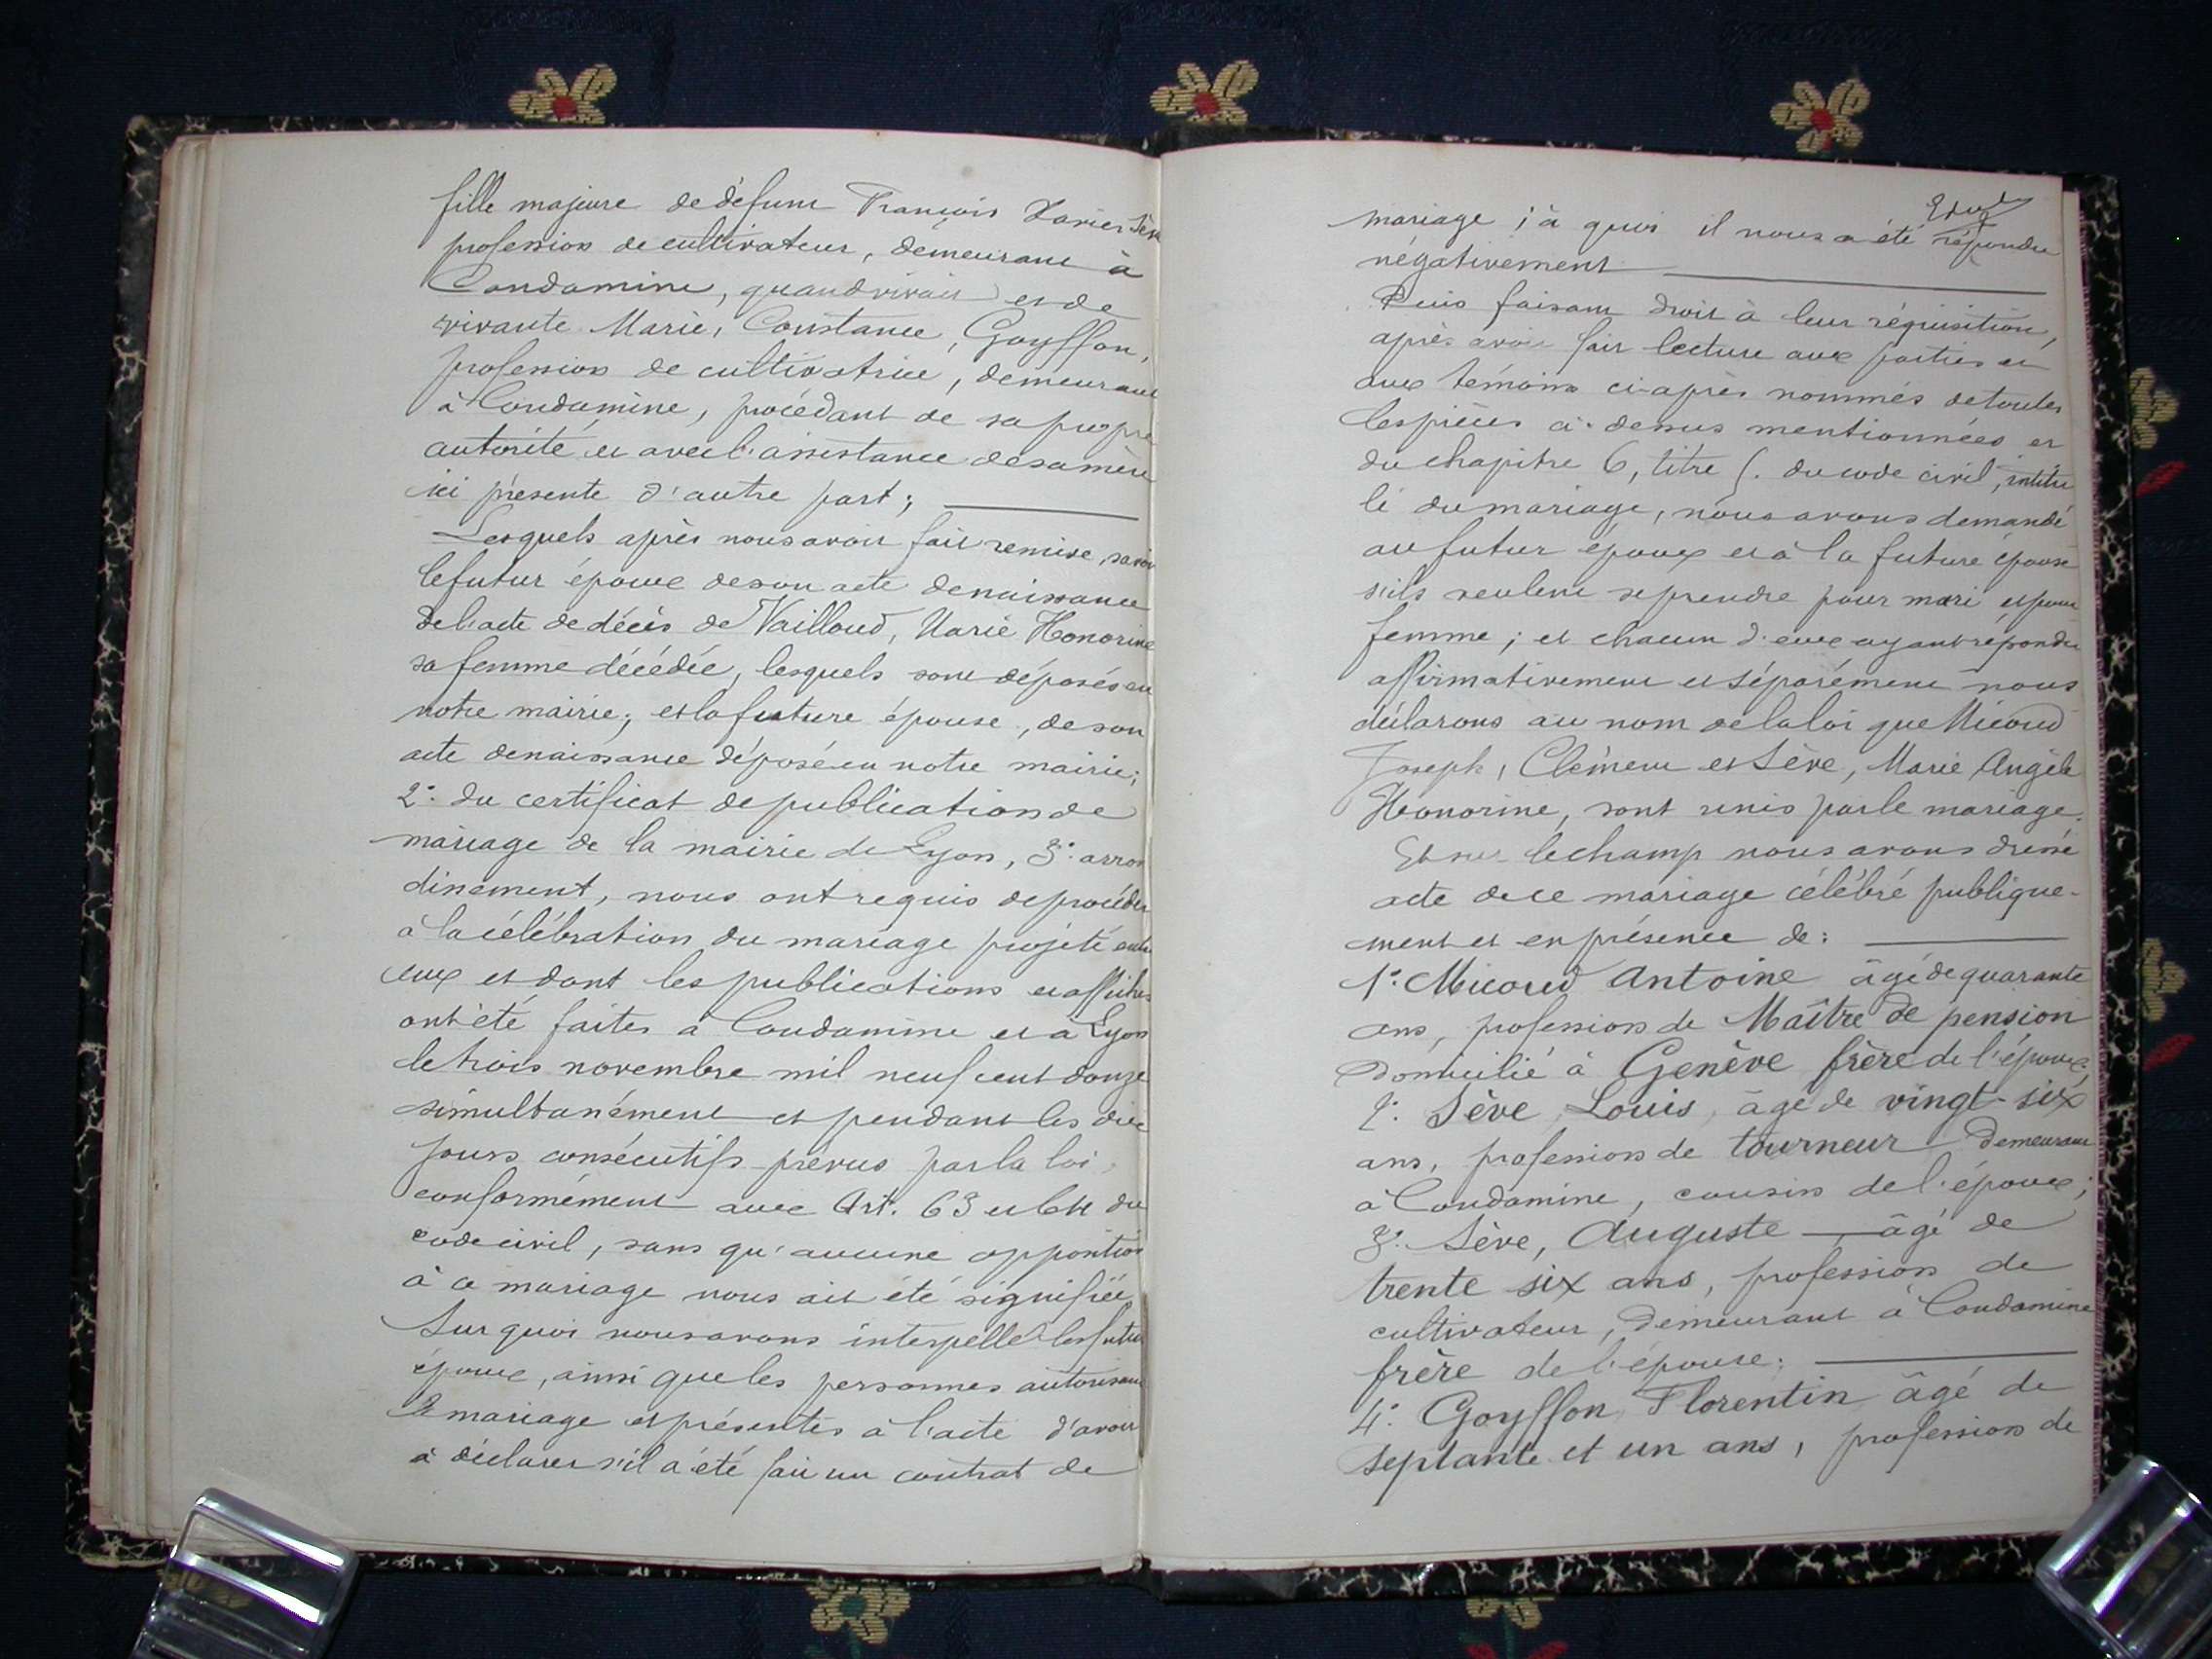 fille majeure de défunt François Xavier Sève
profession de cultivateur, demeurant à
Condamine, quand vivait et de
vivante Marie, Constance, Goyffon,
profession de cultivatrice, demeurant
à Condamine, procédant de sa propre
autorité et avec l'assistance de sa mère
ici présente d'autre part;
Lesquels après nous avoir fait remise, savoir
le futur époux de son acte de naissance
de l'acte de décès de Vailloud, Marie Honorine
sa femme décédée, lesquels sont déposés en
notre mairie; et la future épouse, de son
acte de naissance déposé en notre mairie;
2º. du certificat de publication de
mariage de la mairie de Lyon, 3º. arron
dissement, nous ont requis de procéder
à la célébration du mariage projeté entre
eux et dont les publications et affiches
ont été faites à Condamine et à Lyon
le trois novembre mil neuf cent douze
simultanément et pendant les dix
jours consécutifs prévus par la loi,
conformément aux Art. 63 et 64 du
code civil, sans qu'aucune opposition
à ce mariage nous ait été signifiée
Sur quoi nous avons interpellé les futurs
époux, ainsi que les personnes autorisant
le mariage et présentes à l'acte d'avoir
à déclarer s'il a été fait un contrat de
mariage; à quoi il nous a été répondu
négativement
Puis faisant droit à leur réquisition,
après avoir fait lecture aux parties et
aux témoins ci-après nommés de toutes
les pièces ci-dessus mentionnées et
du chapitre 6, titre 5. du code civil, intitu
lé du mariage, nous avons demandé
au futur époux et à la future épouse
s'ils veulent se prendre pour mari et pour
femme; et chacun d'eux ayant répondu
affirmativement et séparément nous
déclarons au nom de la loi que Micoud
Joseph, Clément et Sève, Marie Angèle
Honorine, sont unis par le mariage.
Et sur le champ nous avons dressé
acte de ce mariage célébré publique-
ment et en présence de:
1º. Micoud Antoine âgé de quarante
ans, profession de Maître de pension
domicilié à Genève frère de l'époux,
2º. Sève, Louis, âgé de vingt-six
ans, profession de tourneur demeurant
à Condamine, cousin de l'époux;
3º. Sève, Auguste, âgé de
trente six ans, profession de
cultivateur, demeurant à Condamine
frère de l'épouse;
4º. Goyffon, Florentin âgé de
septante et un ans, profession de